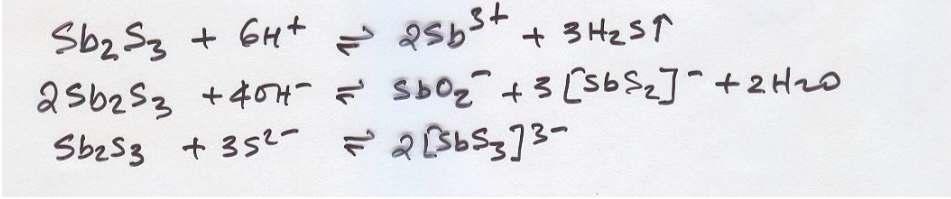 Sb₂S₃ + 6H⁺ ⇌ 2Sb³⁺ + 3H₂S↑
2Sb₂S₃ + 4OH⁻ ⇌ SbO₂⁻ + 3[SbS₂]⁻ + 2H₂O
Sb₂S₃ + 3S²⁻ ⇌ 2[SbS₃]³⁻